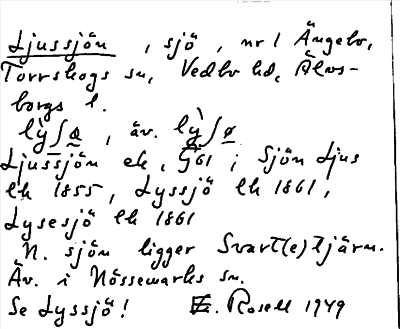 Ljussjön, sjö, nr 1 Ängebo,
Torrskogs sn, Vedbo hd, Älvs-
borgs l.
lỳʃø̱, äv. lỳ̱ʃø̱
Ljussjön ek, G61; Sjön Ljus
lk 1855, Lyssjö lk 1861,
Lysesjö lk 1861
N. sjön ligger Svart(e)tjärn.
Äv. i Nössemarks sn.
Se Lyssjö! E. Rosell 1949